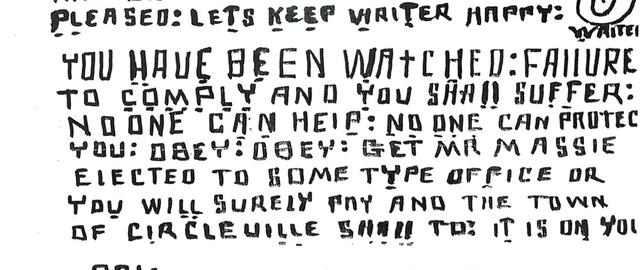 PLEASED: LETS KEEP WRITER HAPPY:
YOU HAVE BEEN WATCHED: FAILURE
TO COMPLY AND YOU SHALL SUFFER:
NO ONE CAN HELP: NO ONE CAN PROTEC
YOU: OBEY: OBEY: GET MR MASSIE
ELECTED TO SOME TYPE OFFICE OR
YOU WILL SURELY PAY AND THE TOWN
OF CIRCLEVILLE SHALL TO: IT IS ON YOU